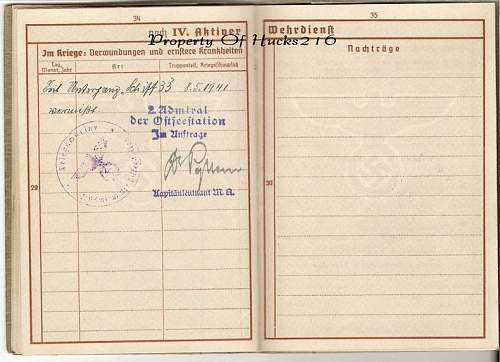 34
noch IV. Aktiver
Im Kriege: Verwundungen und ernstere Krankheiten
Tag, Monat, Jahr
Art
Truppenteil, Kriegsschauplatz
Seit Untergang Schiff 33 8.5.1941
vermißt.
2. Admiral
der Ostseestation
Im Auftrage
Kapitänleutnant M.A.
Kriegsmarine
29
35
Wehrdienst
Nachträge
30
Property Of Hucks216